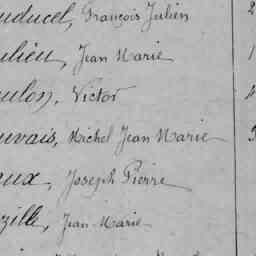 uducel, François Julien 2
ulieu, Jean Marie 1
ulon, Victor 4
uvais, Michel Jean Marie
aux, Joseph Pierre
zille, Jean-Marie